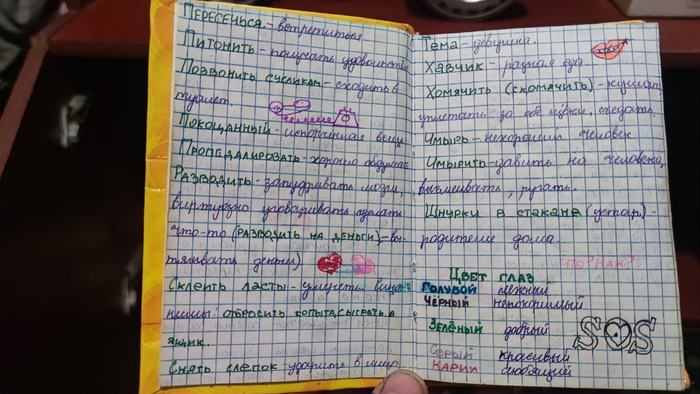 Пересечься - встретиться
Питонить - получать удовольствие
Позвонить сусликам - сходить в
туалет.
Покоцанный - испорченная вещь
Пропедалировать - хорошо обдумать
Разводить - запудривать мозги,
виртуозно уговаривать сделать
что-то (разводить на деньги) - вы-
тягивать деньги)
Склеить ласты - умереть
отбросить копыта, сыграть в
ящик.
Снять слепок - ударить в лицо
Тема -
Хавчик - разная еда
Хомячить (схомячить) - кушать,
уплетать за обе щёки, съедать
Чмырь - нехороший человек
Чмырить - давить на человека,
высмеивать, ругать.
Шнурки в стакане (устар.) -
родители дома.
Что? Как?
Цвет глаз
Голубой нежный
Чёрный непокоримый
Зелёный добрый
SOS
Серый красивый
Карий любящий